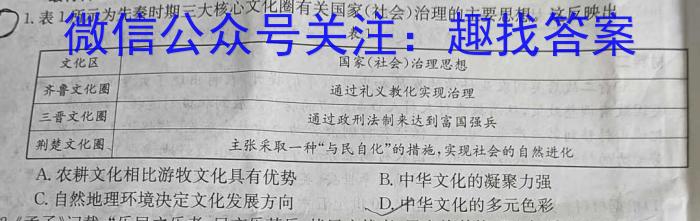 1.表1所示为先秦时期三大核心文化圈有关国家(社会)治理的主要思想。这反映出
微信公众号关注：趣找答案
文化区 国家(社会)治理思想
齐鲁文化圈 通过礼义教化实现治理
三晋文化圈 通过政刑法制来达到富国强兵
荆楚文化圈 主张采取一种“与民自化”的措施,实现社会的自然进化
A.农耕文化相比游牧文化具有优势 B.中华文化的凝聚力强
C.自然地理环境决定文化发展方向 D.中华文化的多元色彩